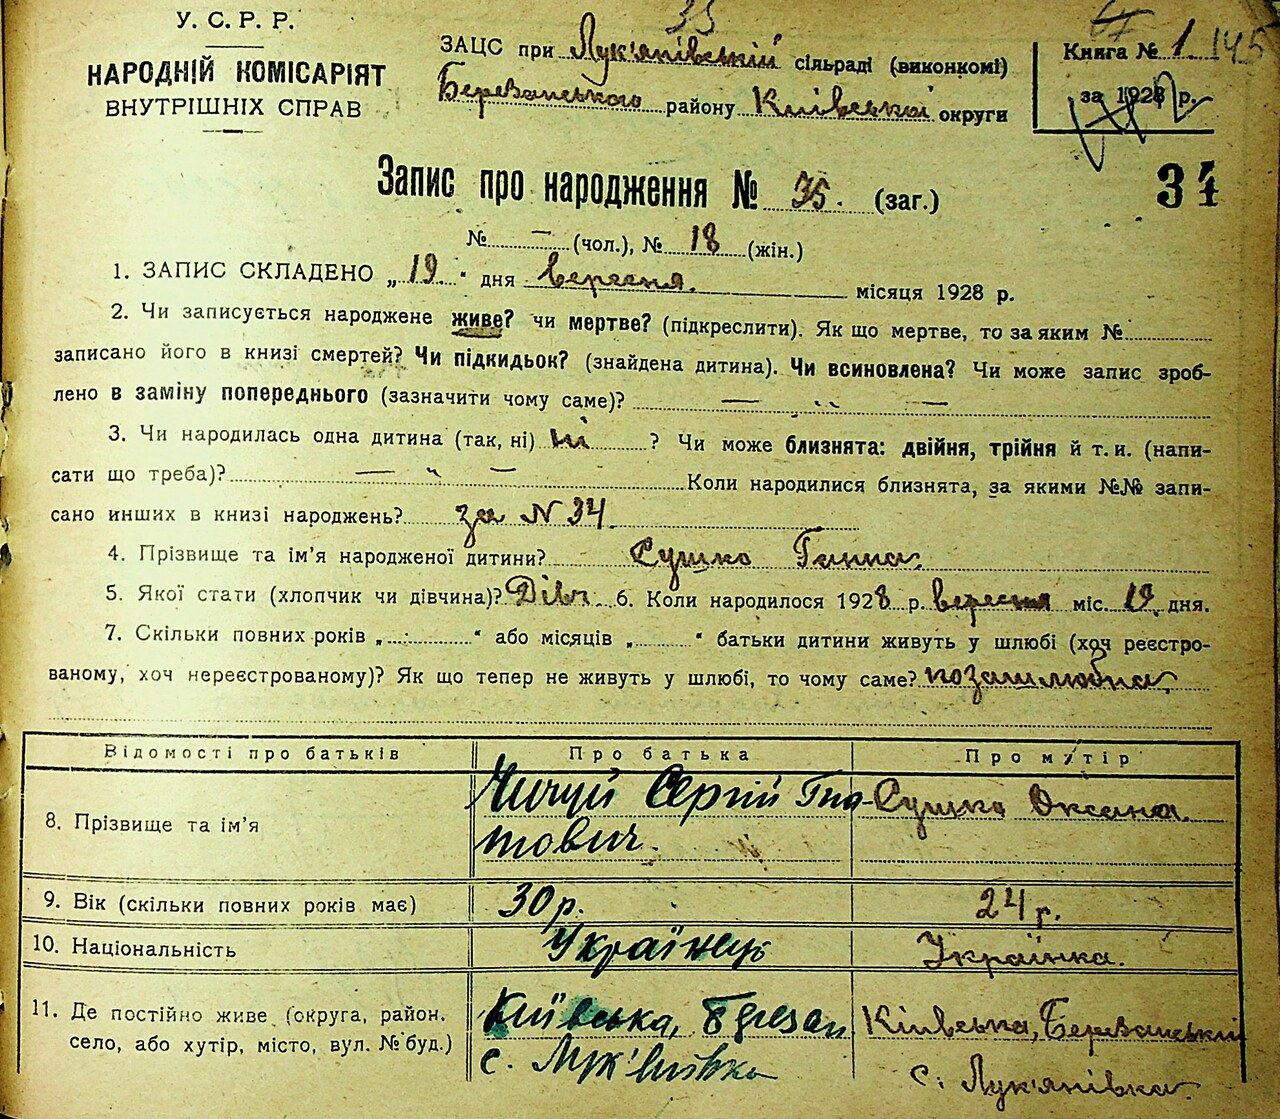 У. С. Р. Р.
НАРОДНІЙ КОМІСАРІЯТ
ВНУТРІШНІХ СПРАВ
35
ЗАЦС при Лук'янівській сільраді (виконкомі)
Березанського району Київської округи
Книга № 1 145
за 1928 р.
34
Запис про народження № 35. (заг.)
№ — (чол.), № 18 (жін.)
1. ЗАПИС СКЛАДЕНО „19" дня вересня. місяця 1928 р.
2. Чи записується народжене живе? чи мертве? (підкреслити). Як що мертве, то за яким №
записано його в книзі смертей? Чи підкидьок? (знайдена дитина). Чи всиновлена? Чи може запис зроб-
лено в заміну попереднього (зазначити чому саме)? — „ —
3. Чи народилась одна дитина (так, ні) ні ? Чи може близнята: двійня, трійня й т. и. (напи-
сати що треба)? — „ — Коли народилися близнята, за якими №№ запи-
сано инших в книзі народжень? за N 34.
4. Прізвище та ім'я народженої дитини? Сушко Ганна.
5. Якої стати (хлопчик чи дівчина)? Дівч. 6. Коли народилося 1928 р. вересня міс. 19 дня.
7. Скільки повних років „ " або місяців „ " батьки дитини живуть у шлюбі (хоч реєстро-
ваному, хоч нереєстрованому)? Як що тепер не живуть у шлюбі, то чому саме? позашлюбна
Відомості про батьків Про батька Про матір
8. Прізвище та ім'я Чичуй Сергій Гна- Сушко Оксана.
тович.
9. Вік (скільки повних років має) 30 р. 24 р.
10. Національність Українець Українка.
11. Де постійно живе (округа, район, Київська, Березан Київська, Березанський
село, або хутір, місто, вул. № буд.) с. Лук'янівка с. Лук'янівка